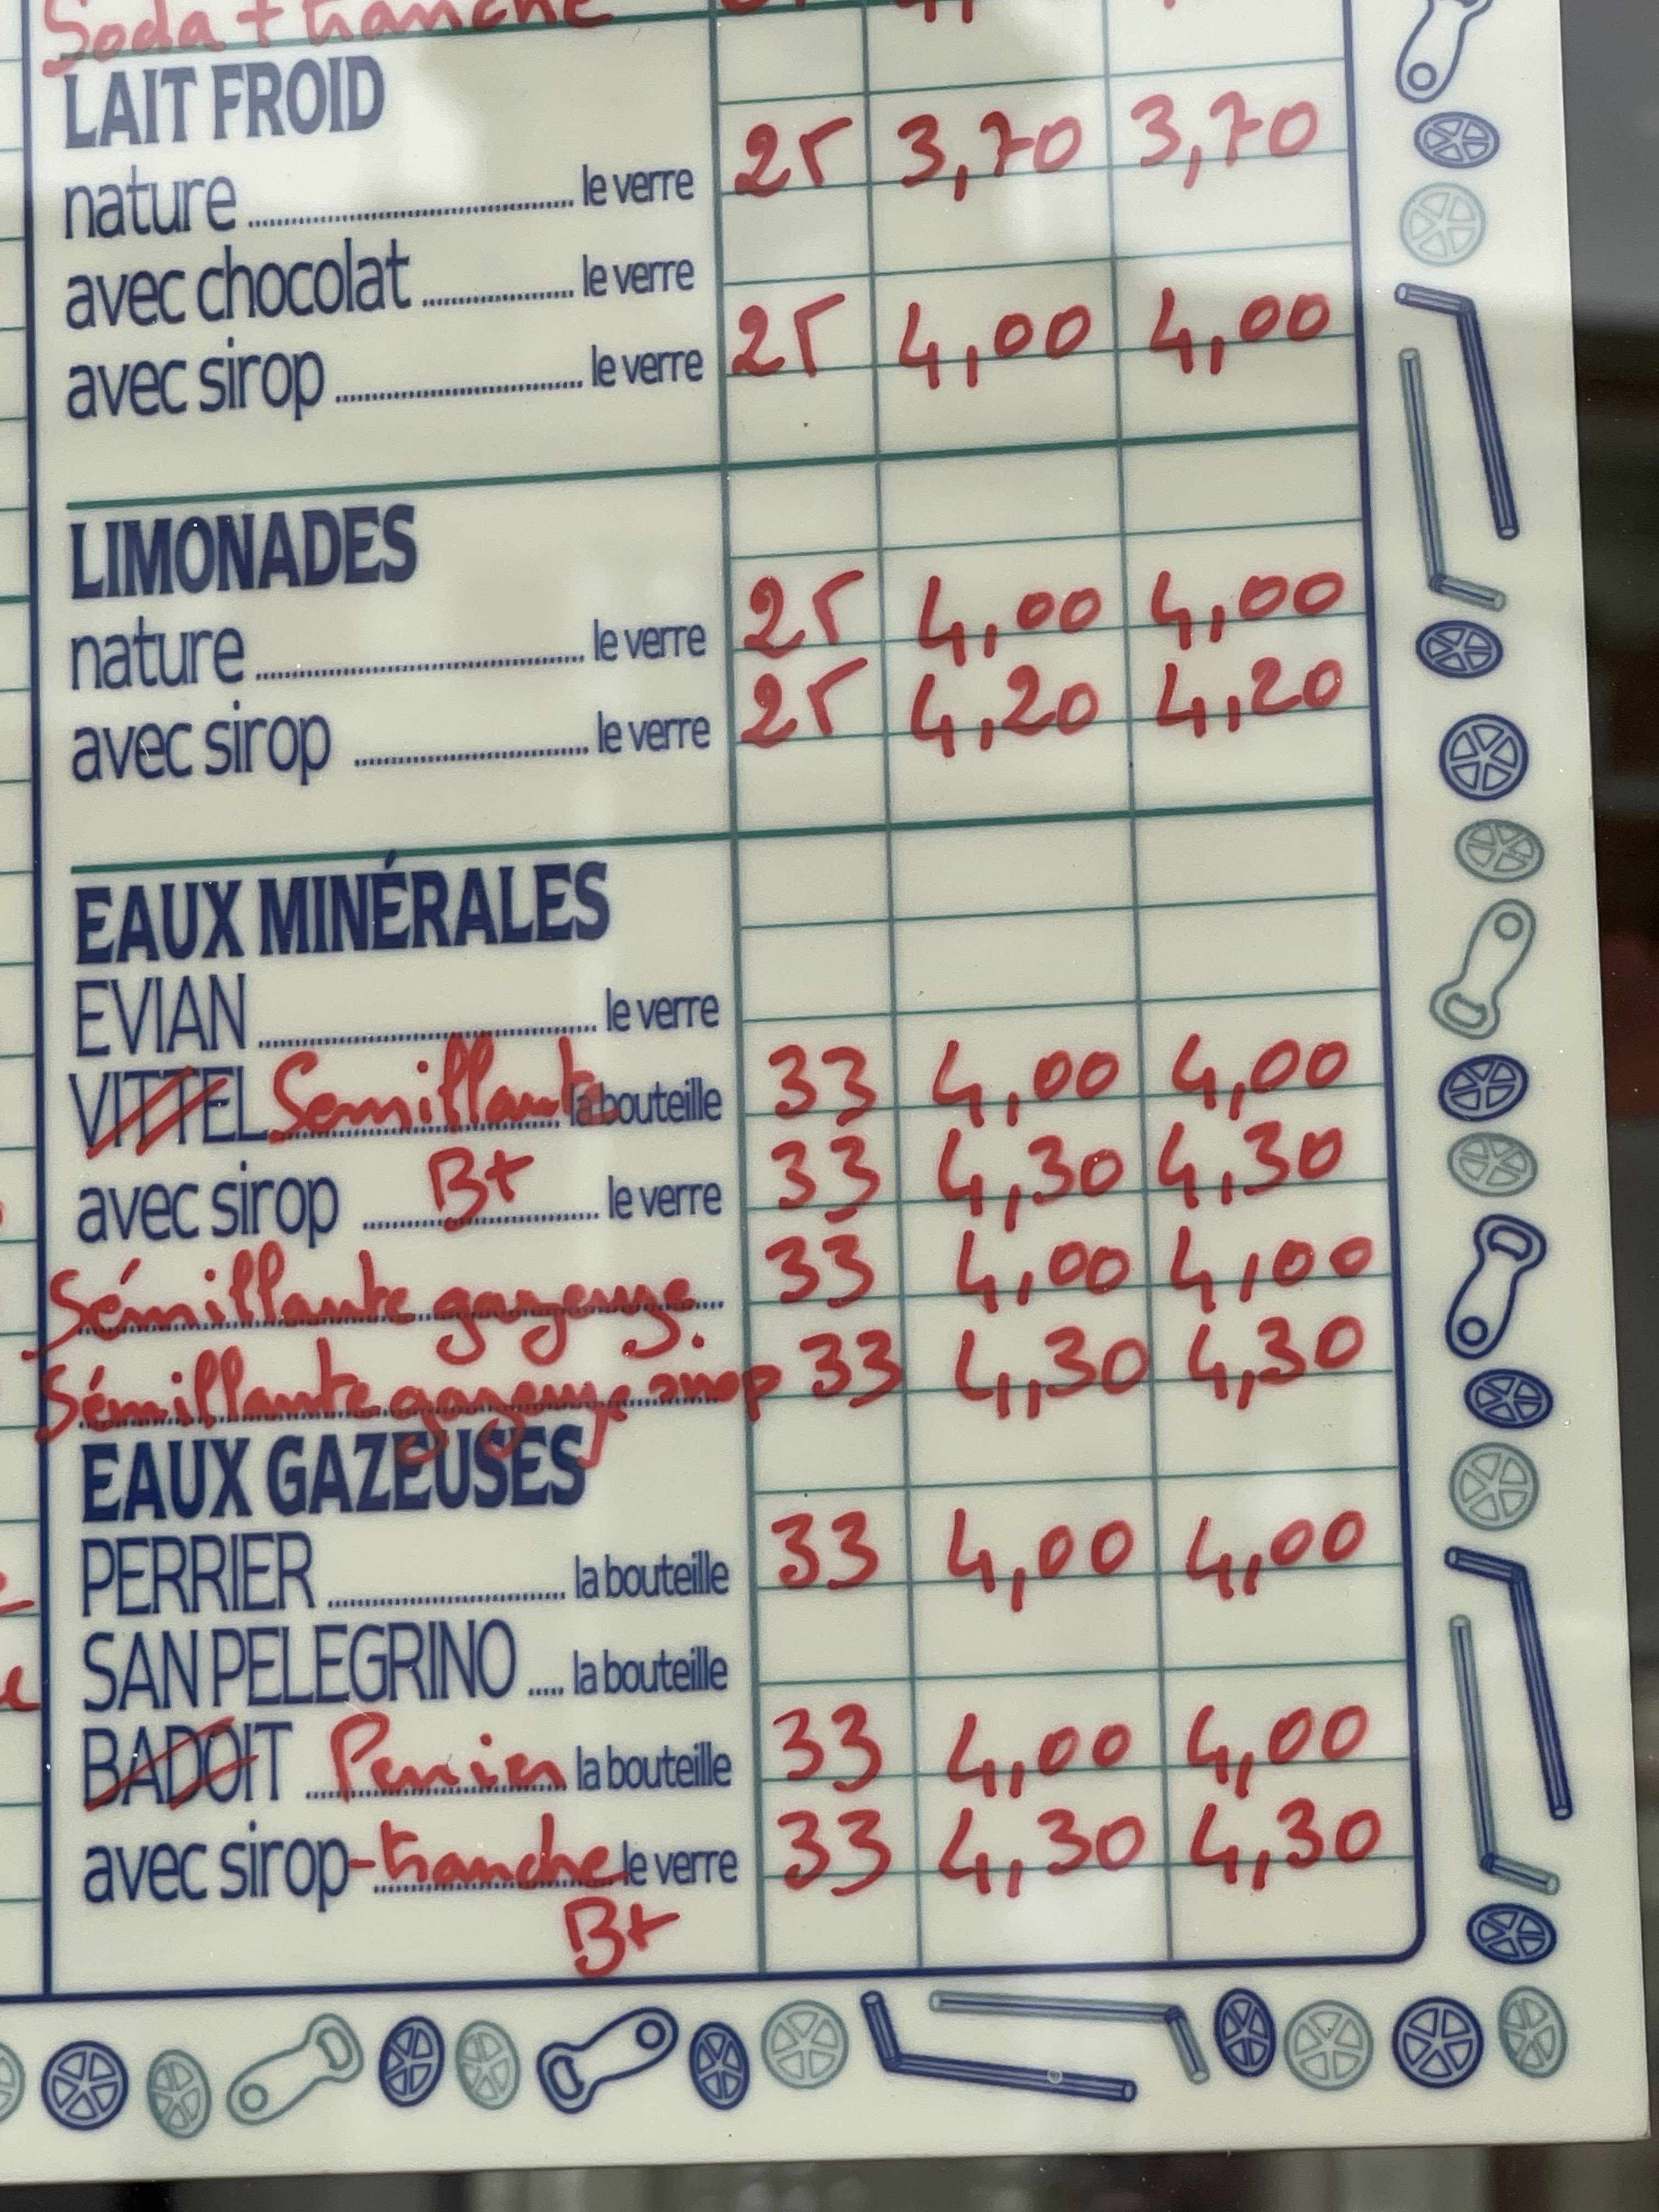 Soda + tranche
LAIT FROID
nature ........ le verre 25 3,70 3,70
avec chocolat ........ le verre
avec sirop ........ le verre 25 4,00 4,00
LIMONADES
nature ........ le verre 25 4,00 4,00
avec sirop ........ le verre 25 4,20 4,20
EAUX MINÉRALES
EVIAN ........ le verre
VITTEL Semillante la bouteille 33 4,00 4,00
avec sirop Bt le verre 33 4,30 4,30
Sémillante gazeuze 33 4,00 4,00
Sémillante gazeuze sirop 33 4,30 4,30
EAUX GAZEUSES
PERRIER ........ la bouteille 33 4,00 4,00
SAN PELEGRINO ..... la bouteille
BADOIT Perrier la bouteille 33 4,00 4,00
avec sirop - tranche le verre 33 4,30 4,30
Bt